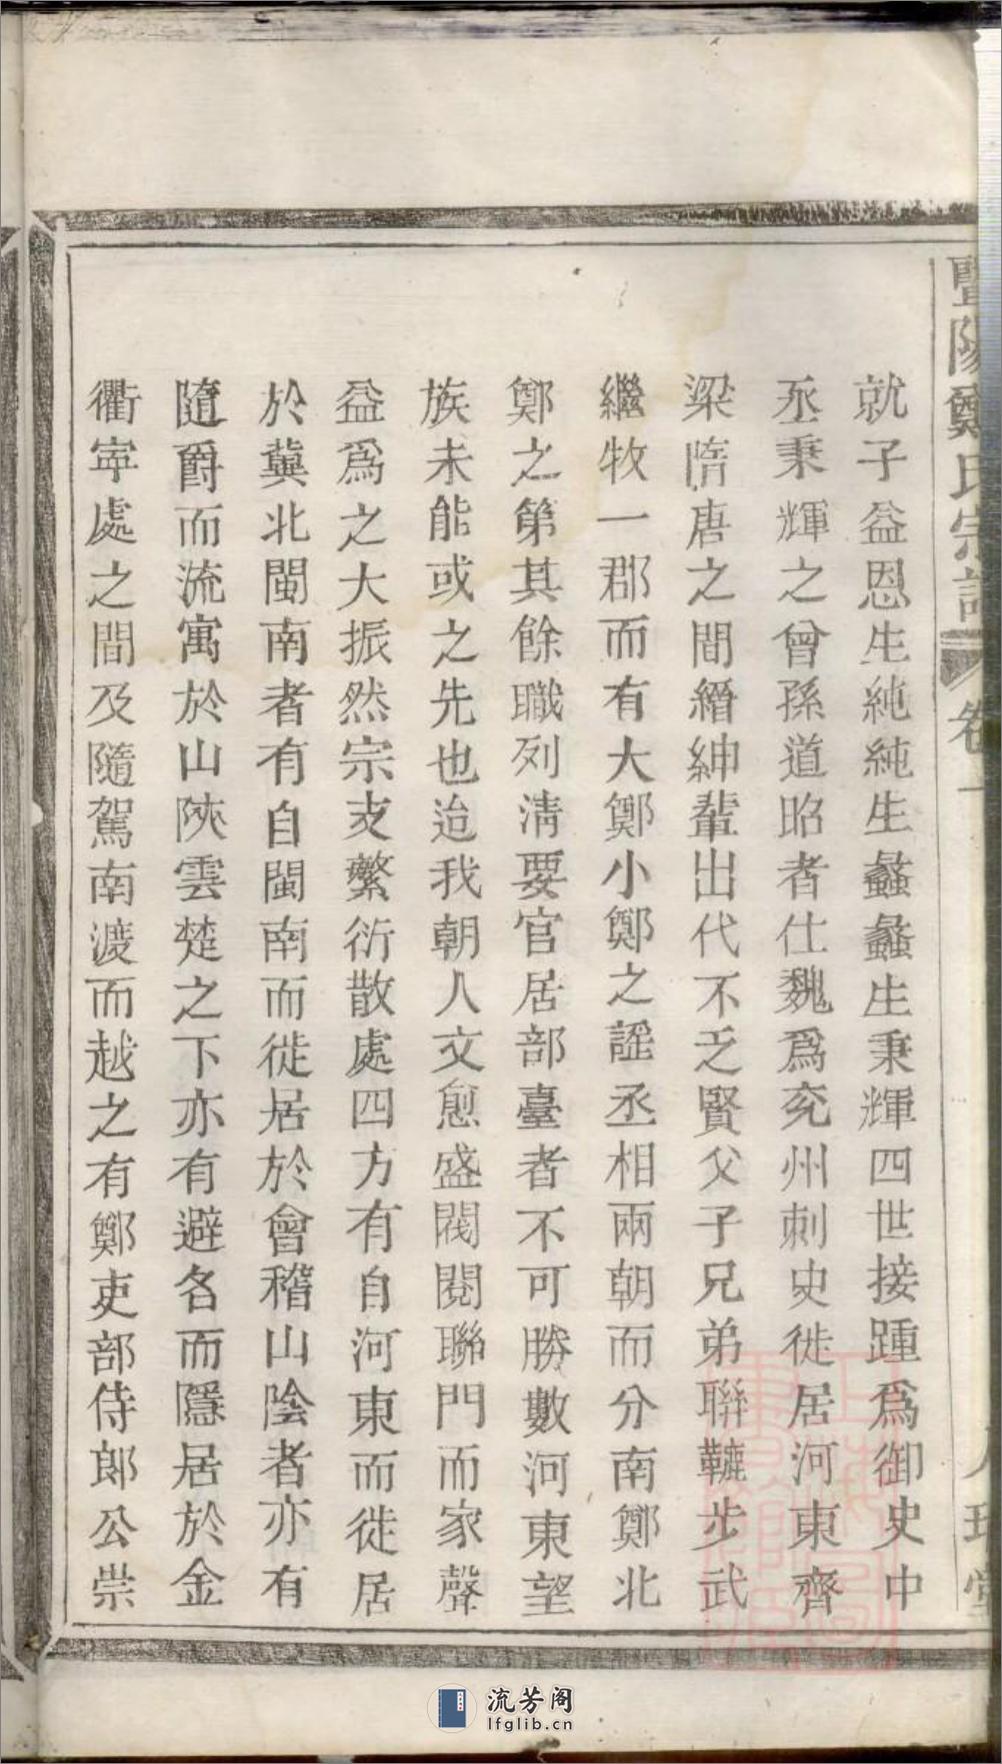 暨陽鄭氏宗譜
卷一
就子益恩生純純生蠡蠡生秉輝四世接踵爲御史中
丞秉輝之曾孫道昭者仕魏爲兖州刺史徙居河東齊
梁隋唐之間縉紳輩出代不乏賢父子兄弟聯鑣步武
繼牧一郡而有大鄭小鄭之謡丞相兩朝而分南鄭北
鄭之第其餘職列淸要官居部臺者不可勝數河東望
族未能或之先也迨我朝人文愈盛閥閱聯門而家聲
益爲之大振然宗支繁衍散處四方有自河東而徙居
於冀北閩南者有自閩南而徙居於會稽山陰者亦有
隨爵而流寓於山陝雲楚之下亦有避名而隱居於金
衢寧處之間及隨駕南渡而越之有鄭吏部侍郞公崇
流芳阁
lfglib.cn